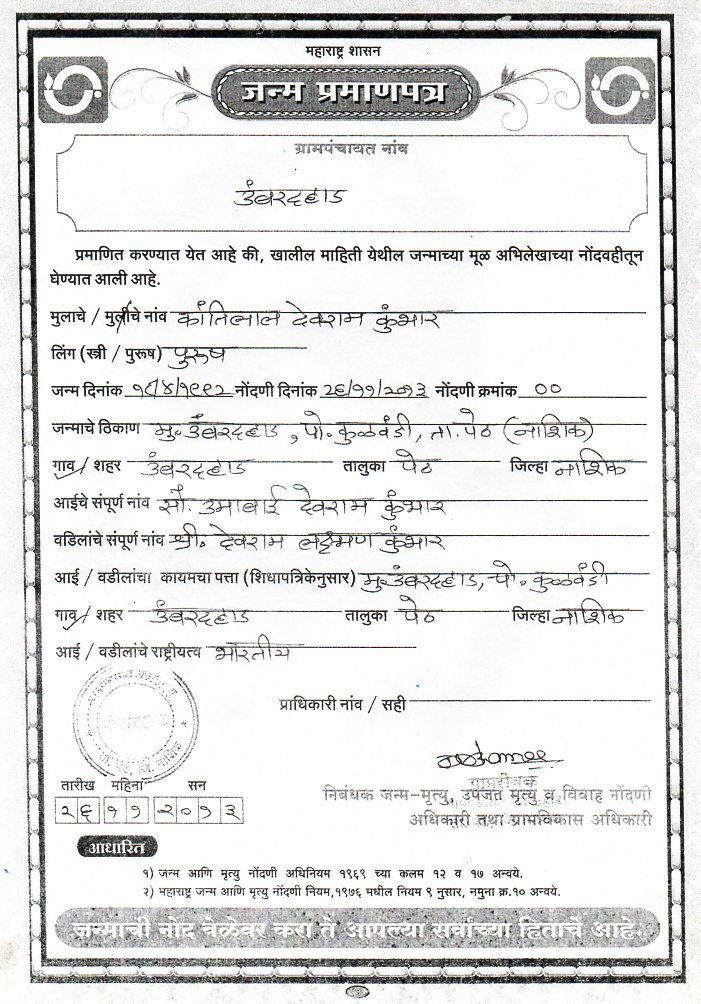 महाराष्ट्र शासन
जन्म प्रमाणपत्र
ग्रामपंचायत नांव
उंबरदहाड
प्रमाणित करण्यात येत आहे की, खालील माहिती येथील जन्माच्या मूळ अभिलेखाच्या नोंदवहीतून
घेण्यात आली आहे.
मुलाचे / मुलीचे नांव कांतिलाल देवराम कुंभार
लिंग (स्त्री / पुरूष) पुरूष
जन्म दिनांक नोंदणी दिनांक २६/११/२०१३ नोंदणी क्रमांक ००
जन्माचे ठिकाण मु. उंबरदहाड, पो. कुळवंडी, ता. पेठ (नाशिक)
गाव / शहर उंबरदहाड तालुका पेठ जिल्हा नाशिक
आईचे संपूर्ण नांव सौ. उमाबाई देवराम कुंभार
वडिलांचे संपूर्ण नांव श्री. देवराम लक्ष्मण कुंभार
आई / वडीलांचा कायमचा पत्ता (शिधापत्रिकेनुसार) मु. उंबरदहाड, पो. कुळवंडी
गाव / शहर उंबरदहाड तालुका पेठ जिल्हा नाशिक
आई / वडीलांचे राष्ट्रीयत्व भारतीय
प्राधिकारी नांव / सही
तारीख महिना सन
२६ ११ २०१३
ग्रामसेवक
निबंधक जन्म-मृत्यु, उपजत मृत्यु व विवाह नोंदणी
अधिकारी तथा ग्रामविकास अधिकारी
आधारित
१) जन्म आणि मृत्यु नोंदणी अधिनियम १९६९ च्या कलम १२ व १७ अन्वये.
२) महाराष्ट्र जन्म आणि मृत्यु नोंदणी नियम,१९७६ मधील नियम ९ नुसार, नमुना क्र.१० अन्वये.
जन्माची नोंद वेळेवर करा ते आपल्या सर्वांच्या हिताचे आहे.